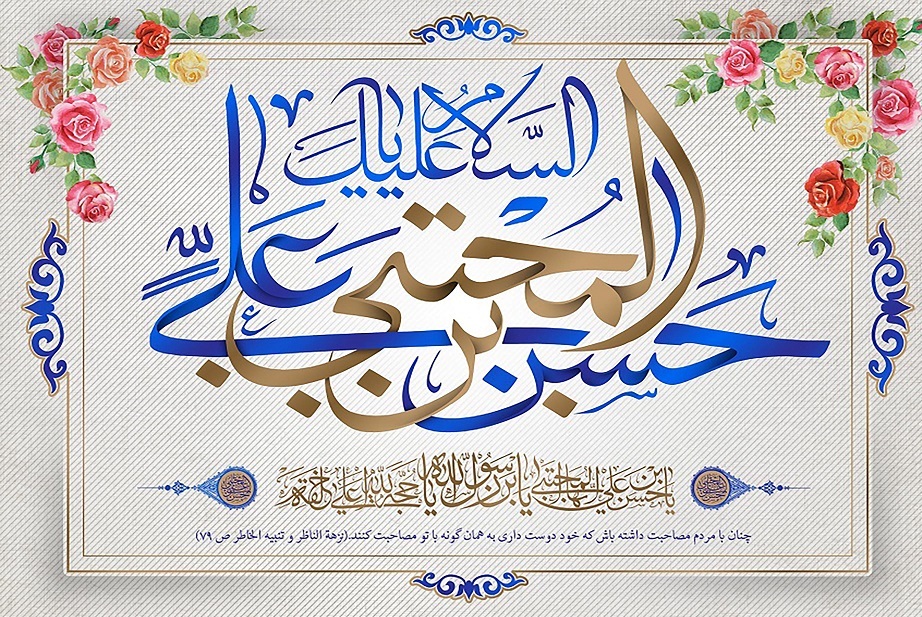 السَّلامُ عَلَيكَ
حسن بن علیٍّ المجتبی
یا حسن بن علی ایها المجتبی یابن رسول الله یا حجة الله علی خلقه
چنان با مردم مصاحبت داشته باش که خود دوست داری به همان گونه با تو مصاحبت کنند.(نزهة الناظر و تنبیه الخاطر ص ۷۹)